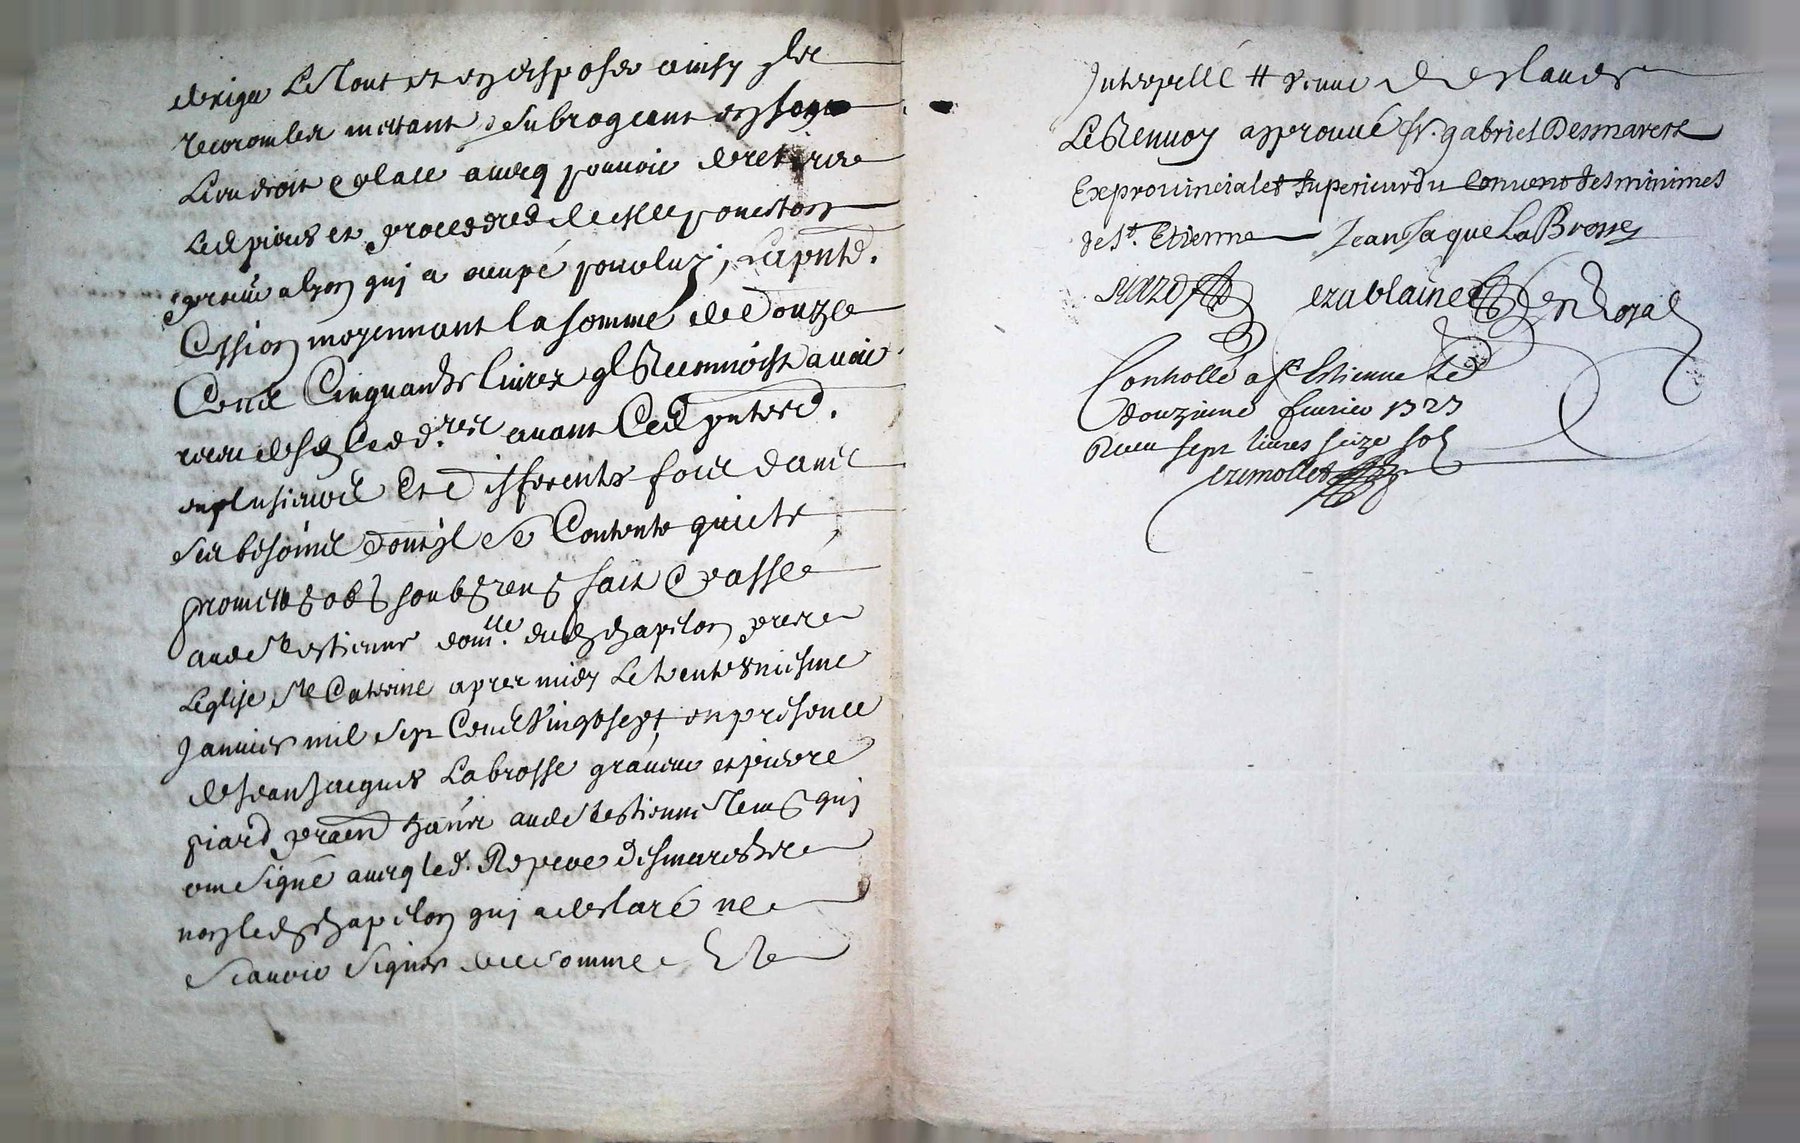 dexiger Le tout et en disposer ainsy quil
verra mettant & subrogeant en son
Lieu droit & place avecq pouvoir de retirer
Les pieces et procedures de Me
procur alzon qui a occupé pour luy, La pnte
Cession moyennant la somme de Douze
Cent Cinquante livres qil Reconnoist avoir
receu avant Ces pntes
en plusieurs et differentes fois dans
ses besoins dont il se Contente quicte
promettes obs soubs rens fait & passé
aud St Estienne domlle dud chapelon pres
Leglise Ste Caterine apres midy Le trente uniesme
Janvier mil sept Cent Vingt sept en presence
de Jean Jacques Labrosse graveur et pierre
piard praen hants aud St Estienne Tems qui
ont signé avecq led. R pere desmarestz et
non led chapelon qui a declaré ne
scavoir signer de ce Sommé & Re
Interpellé # Deslandes
Le Renvoy approuvé fr. gabriel Desmarest
Exprovincial et Superieur du Convent des minimes
de St. Etienne Jean Jaque La Brosse
piard ezablaine
Controllé a St Estienne Le
douzieme fevrier 1727
Receu sept livres seize sols